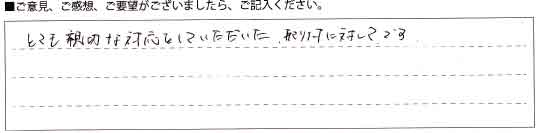 ■ご意見、ご感想、ご要望がございましたら、ご記入ください。
とても親切な対応をしていただいた、取り付けに対してです